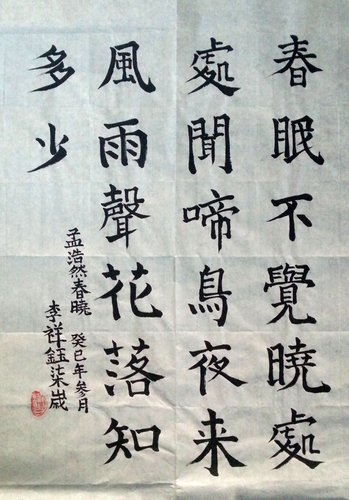 春眠不覺曉處
處聞啼鳥夜来
風雨聲花落知
多少
孟浩然春曉 癸巳年參月
李祥鈺柒歲